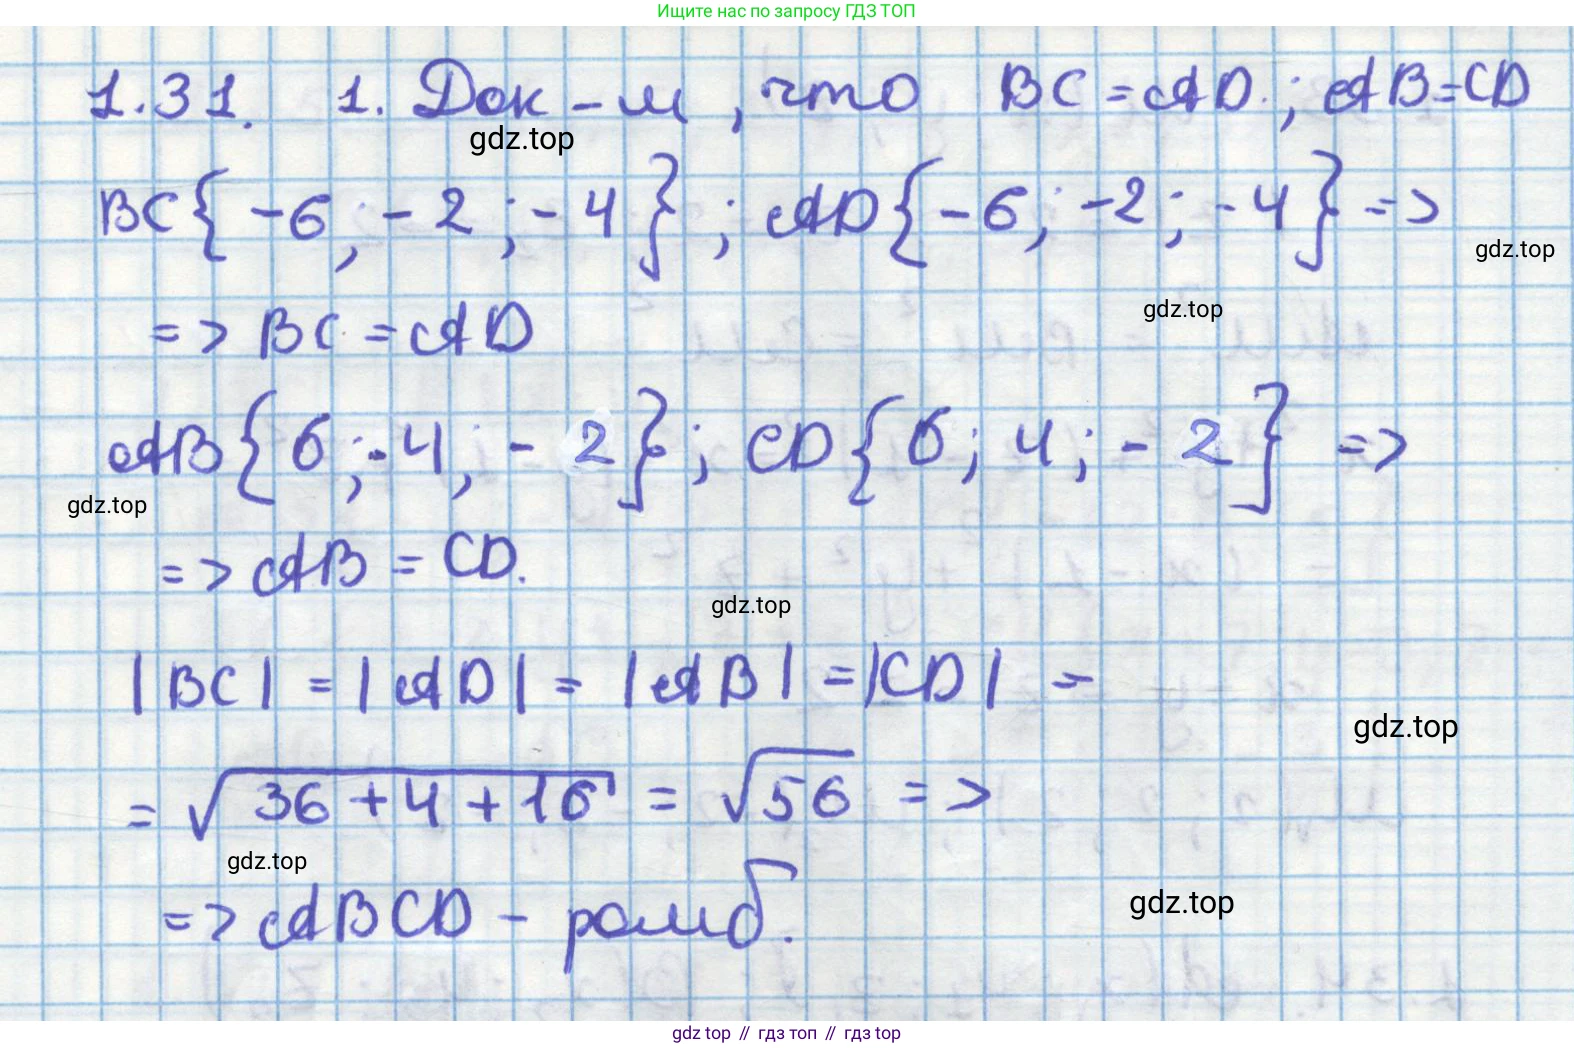 Ищите нас по запросу ГДЗ ТОП
1.31. 1. Док-м, что BC = AD; AB = CD
gdz.top
BC{-6; -2; -4}; AD{-6; -2; -4} =>
gdz.top
gdz.top
=> BC = AD
AB{6; -4; -2}; CD{6; 4; -2} =>
gdz.top
=> AB = CD.
gdz.top
|BC| = |AD| = |AB| = |CD| =
gdz.top
= √36 + 4 + 16 = √56 =>
gdz.top
=> ABCD - ромб.
gdz.top
gdz top // гдз топ // гдз top